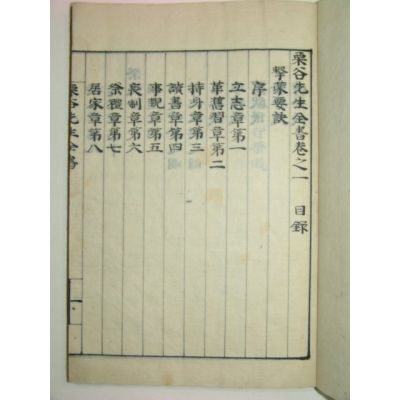 栗谷先生全書卷之一 目錄
擊蒙要訣
序
立志章第一
革舊習章第二
持身章第三
讀書章第四
事親章第五
喪制章第六
祭禮章第七
居家章第八
栗谷先生全書
一